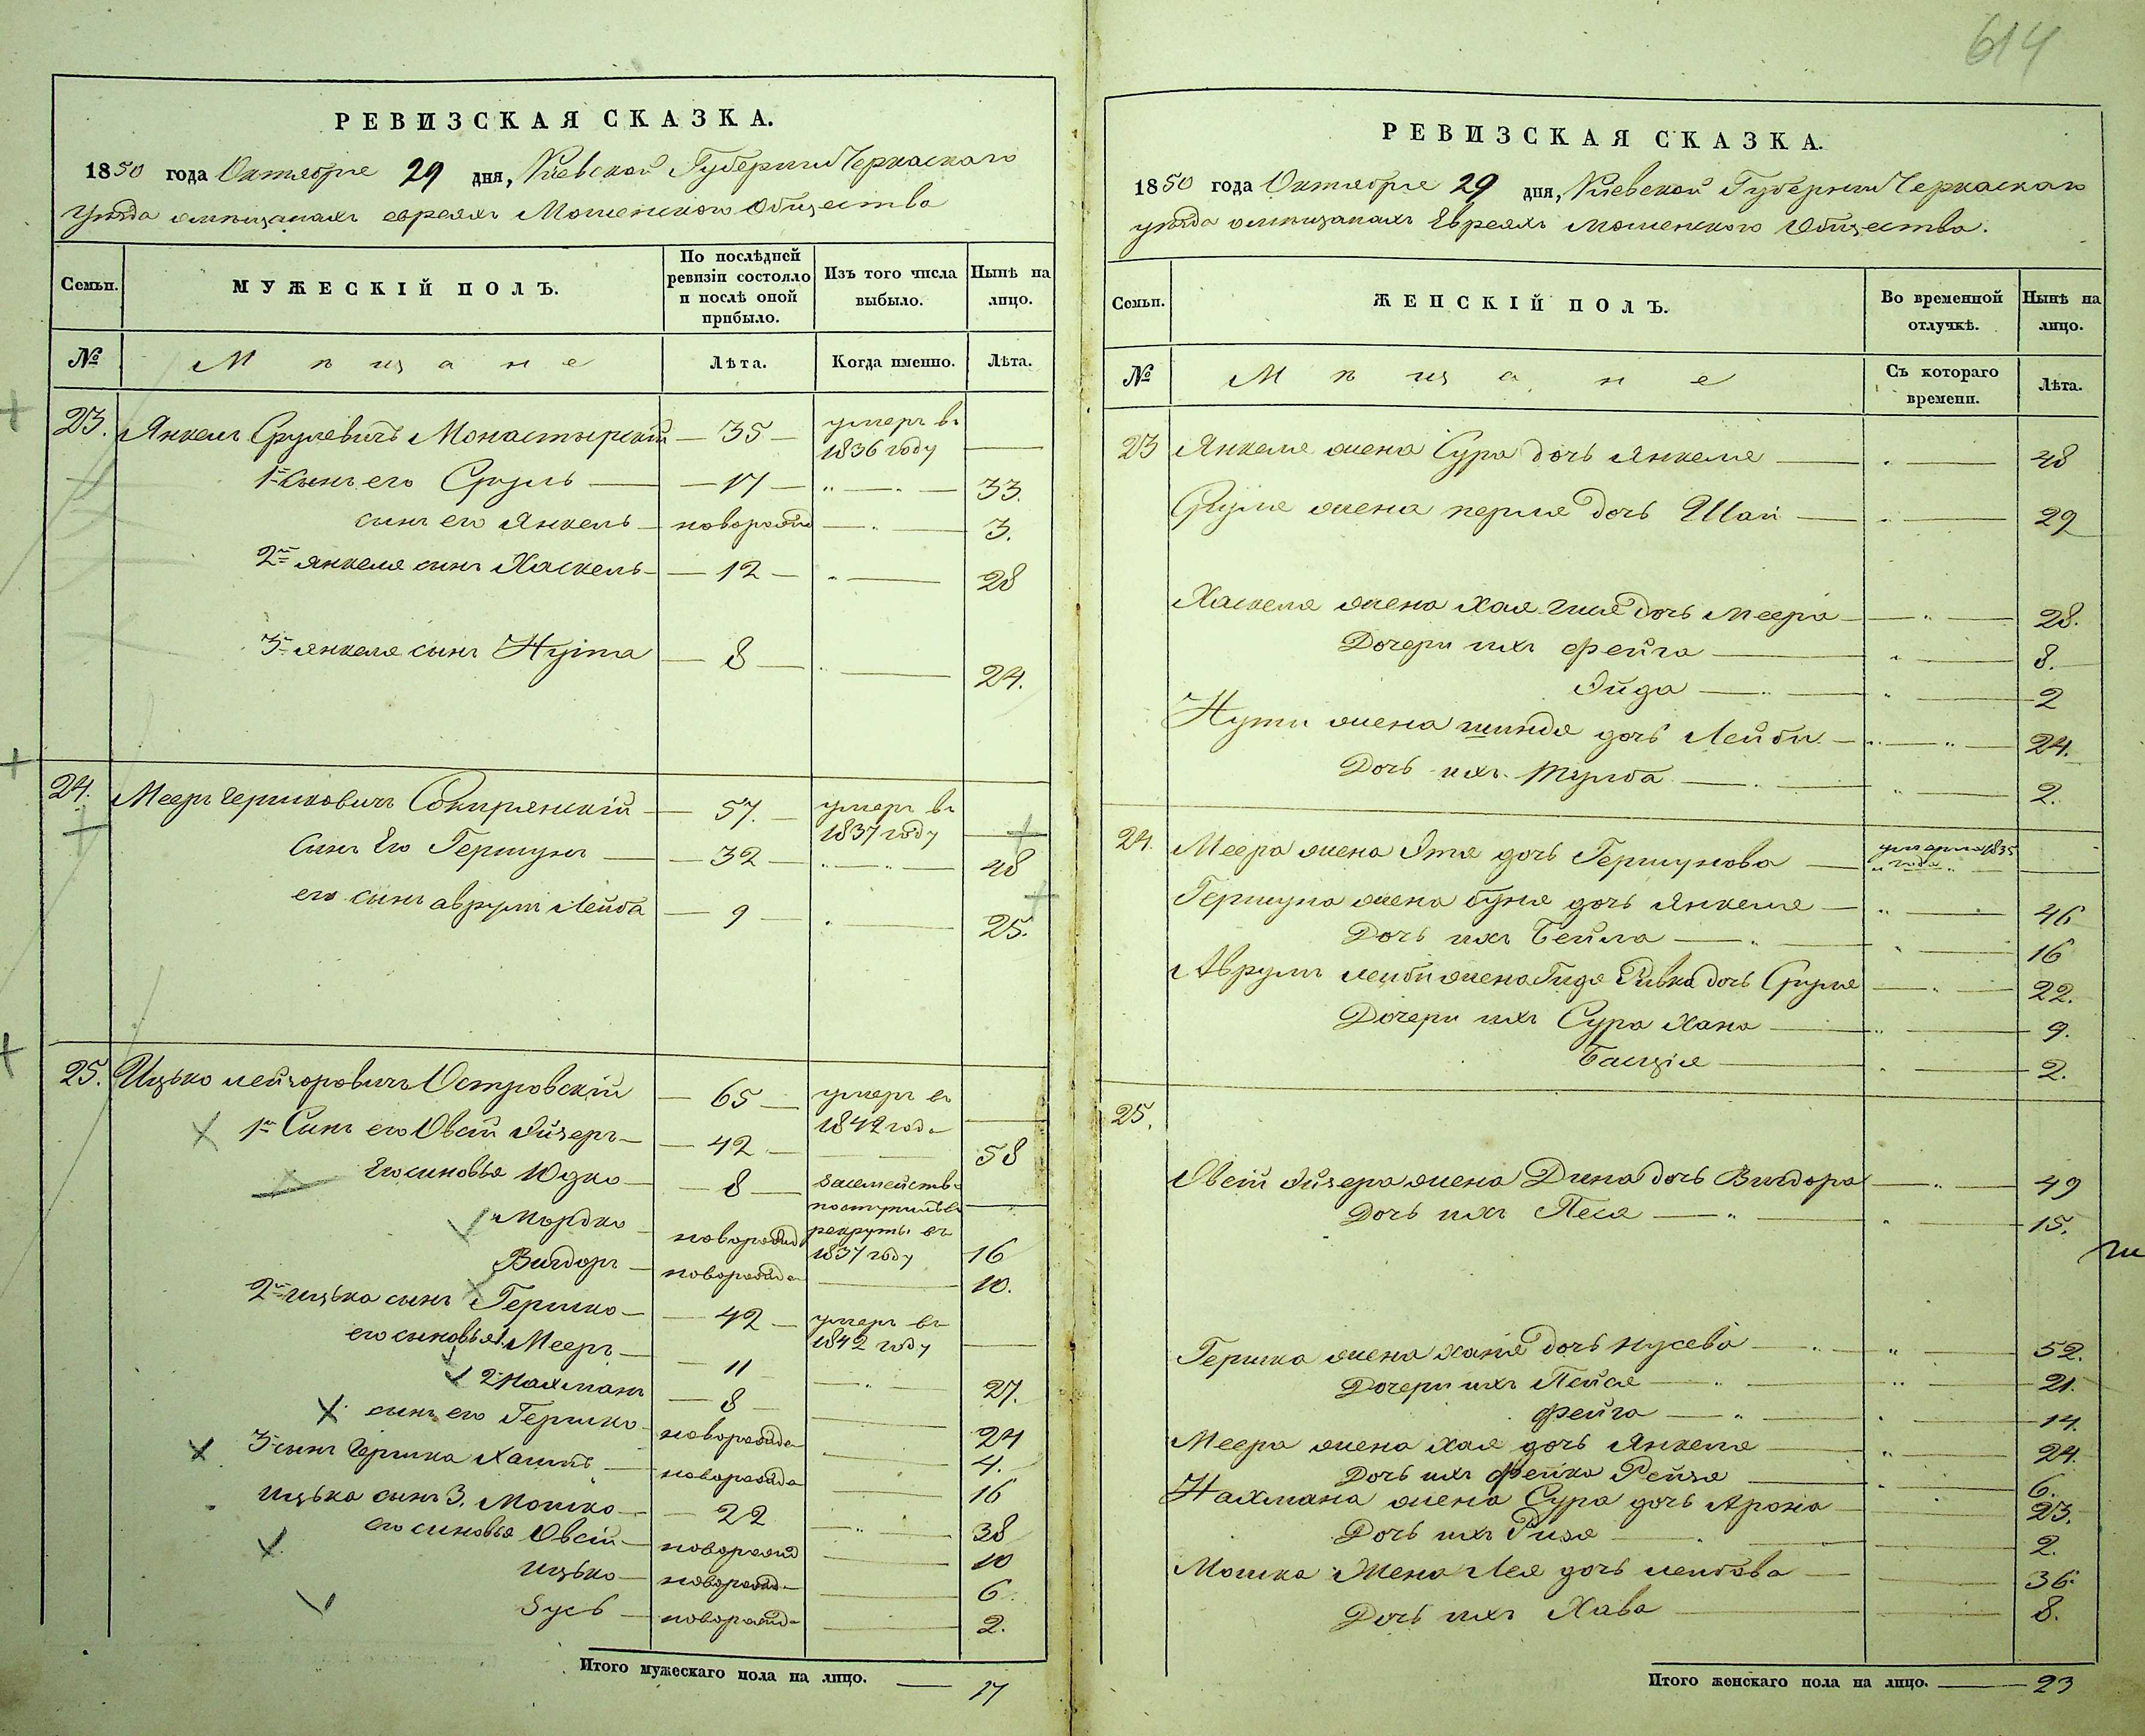 614
РЕВИЗСКАЯ СКАЗКА.
1850 года Октября 29 дня, Киевской Губернии Черкаскаго
уѣзда омѣщанахъ евреяхъ Мошенского Общества
Семьи.
МУЖЕСКІЙ ПОЛЪ.
По послѣдней ревизіи состояло и послѣ оной прибыло.
Изъ того числа выбыло.
Нынѣ на лицо.
№
Мѣщане
Лѣта.
Когда именно.
Лѣта.
23. Янкель Срулевичъ Монастырскій — 35 — умеръ въ 1836 году —
1й Сынъ его Сруль — 17 — 33.
сынъ его Янкель — новорожд — 3.
2й Янкеля сынъ Хаскель — 12 — 28
3й Янкеля сынъ Нута — 8 — 24.
24. Мееръ Гершковичъ Сомирянскій — 57. — умеръ въ 1837 году —
Сынъ Его Гершунъ — 32 — 48
его сынъ аврумъ Лейба — 9 — 25.
25. Ицько лейзоровичъ Островскій — 65 — умеръ въ 1842 года —
1й Сынъ его Овсій Эйзеръ — 42 — 58
Его сыновья Юдко — 8 — засемейство поступилъ въ рекруты въ 1837 году —
Мордко — новорожд 16
Вигдоръ — новорожда — 10.
2й ицька сынъ Гершко — 42 — умеръ въ 1842 году —
его сыновья 1. Мееръ — 11 — 27.
2 Нахманъ — 8 — 24
сынъ его Гершко — новорожда — 4.
3й сынъ Гершка Хаимъ — новорожда — 16
Ицька сынъ 3. Мошко — 22 — 38
его сыновья Овсій — новорожд — 10
ицько — новорожд — 6.
Зусь — новорожд — 2.
Итого мужескаго пола на лицо. — 17
РЕВИЗСКАЯ СКАЗКА.
1850 года Октября 29 дня, Киевской Губернии Черкаскаго
уѣзда омѣщанахъ Евреяхъ Мошенского Общества.
Семьи.
ЖЕНСКІЙ ПОЛЪ.
Во временной отлучкѣ.
Нынѣ на лицо.
№
Мѣщане
Съ котораго времени.
Лѣта.
23 Янкеля жена Сура дочь Янкеля — 48
Сруля жена перля дочь Шаи — 29
Хаскеля жена Хая гися дочь Меера — 28.
Дочери ихъ Фейга — 8.
Эйда — 2
Нути жена шинда дочь Лейби — 24.
Дочь ихъ Тулба — 2.
24. Меера жена Этя дочь Гершунова — умерла 1835 года —
Гершуна жена буня дочь Янкеля — 46
Дочь ихъ Бейла — 16
Аврумъ лейби жена Гидя Ривка дочь Сруля — 22.
Дочери ихъ Сура Хана — 9.
Басція — 2.
25.
Овсій Эйзера жена Дина дочь Вигдора — 49
Дочь ихъ Песя — 15.
Гершка жена ханя дочь нусева — 52.
Дочери ихъ Пейся — 21.
фейга — 14.
Меера жена хая дочь Янкеля — 24.
Дочь ихъ фейка Рейзя — 6.
Нахмана жена Сура дочь Арона — 23.
Дочь ихъ Ризя — 2.
Мошка Жена Лея дочь лейбова — 36.
Дочь ихъ Хава — 8.
Итого женскаго пола на лицо. — 23